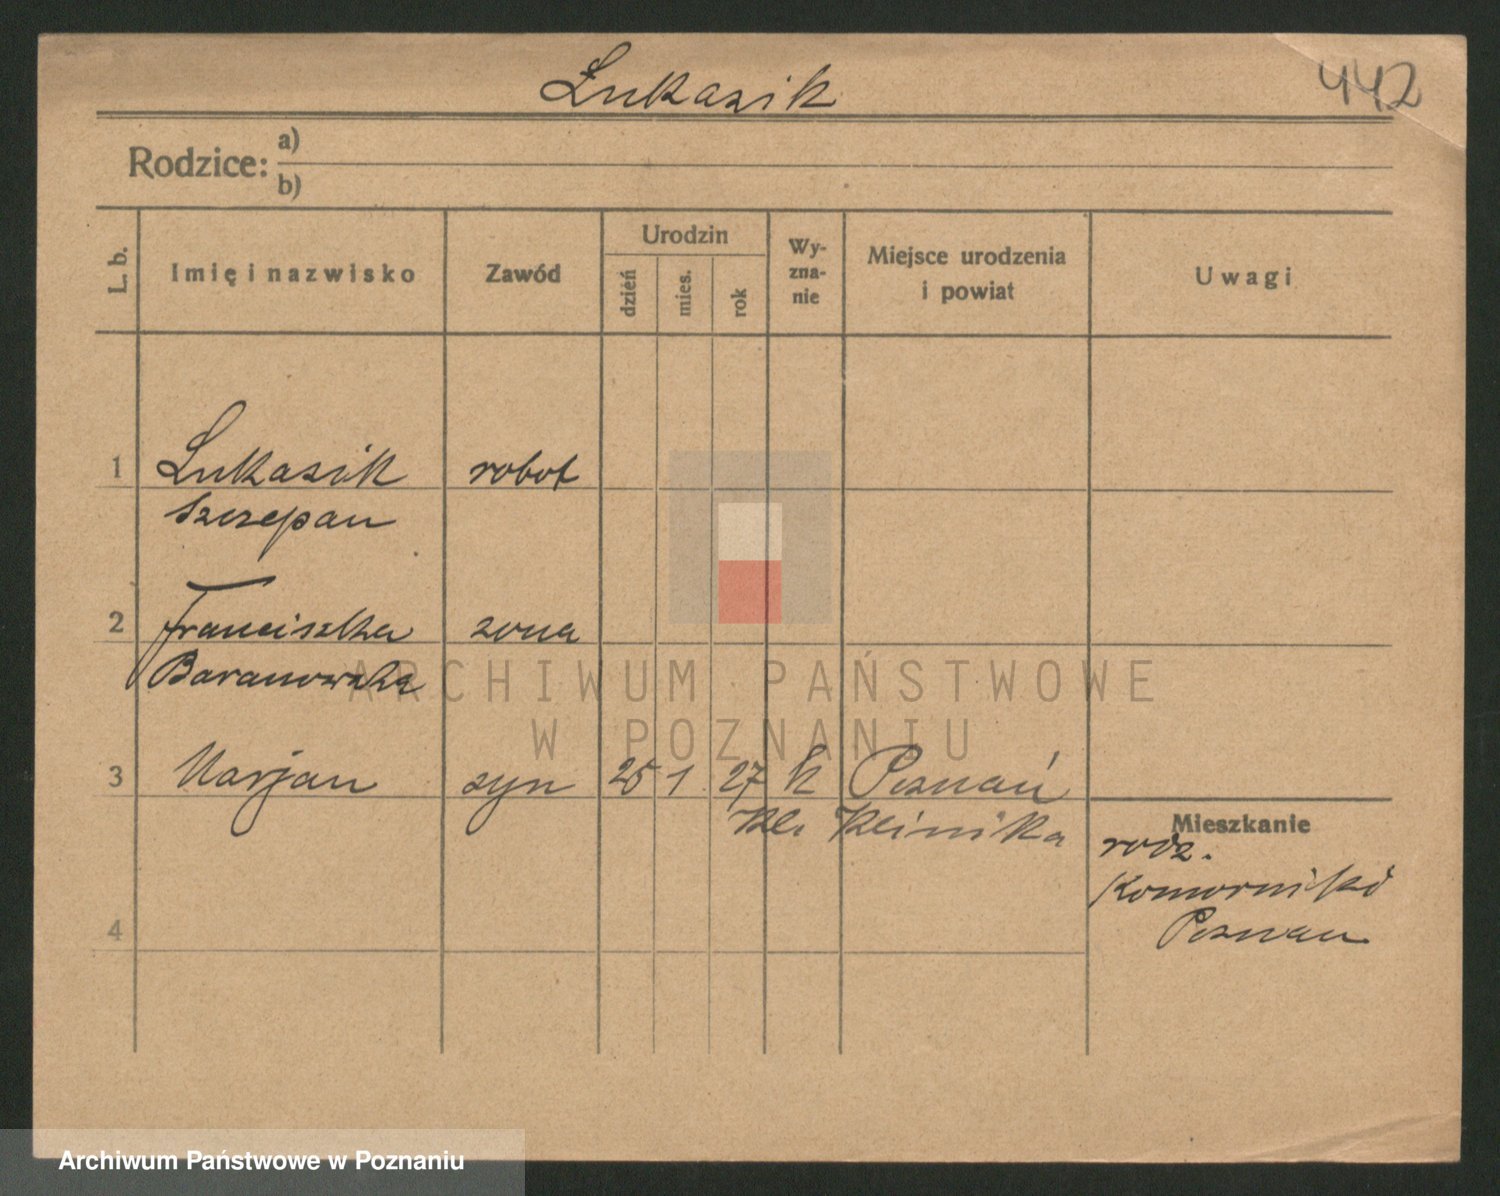 Łukasik
442
Rodzice: a)
b)
L. b.
Imię i nazwisko
Zawód
Urodzin
dzień
mies.
rok
Wy-
zna-
nie
Miejsce urodzenia
i powiat
Uwagi
1 Łukasik robot
Szczepan
2 Franciszka żona
Baranowska
3 Marjan syn 25 1 27 k Poznań
Kli Klinika
4
Mieszkanie
rodz.
Komorniki
Poznan
ARCHIWUM PAŃSTWOWE
W POZNANIU
Archiwum Państwowe w Poznaniu